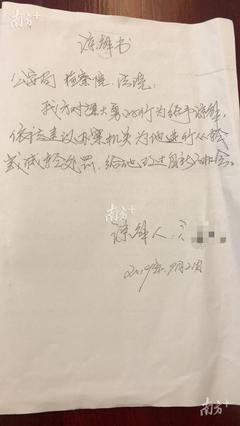 南方+
谅解书
公安局 检察院、法院:
我方对樊大勇的行为给予谅解,
依法建议办案机关为他进行从轻
或减轻处罚,给他改过自新的机会。
南方+
谅解人:
2019年9月21日
南方+
南方+